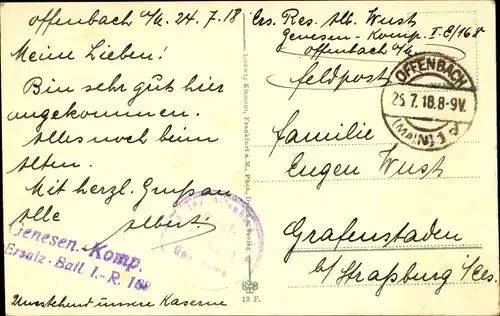 Offenbach a/M. 24.7.18
Meine Lieben!
Bin sehr gut hier
angekommen.
Alles noch beim
Alten.
Mit herzl. Gruß an
Alle
Albert.
Genesen. Komp.
Ersatz-Batl. I.-R. 168
Umstehend unsere Kaserne
Ludwig Klement, Frankfurt a. M., Phot.
18 F.
Ers. Res. Alb. Wust
Genesen-Komp. I.E/168
Offenbach a/M.
Feldpost
OFFENBACH
25.7.18.8-9V.
(MAIN) 1 d
Familie
Eugen Wust
Grafenstaden
b/ Straßburg i/Els.